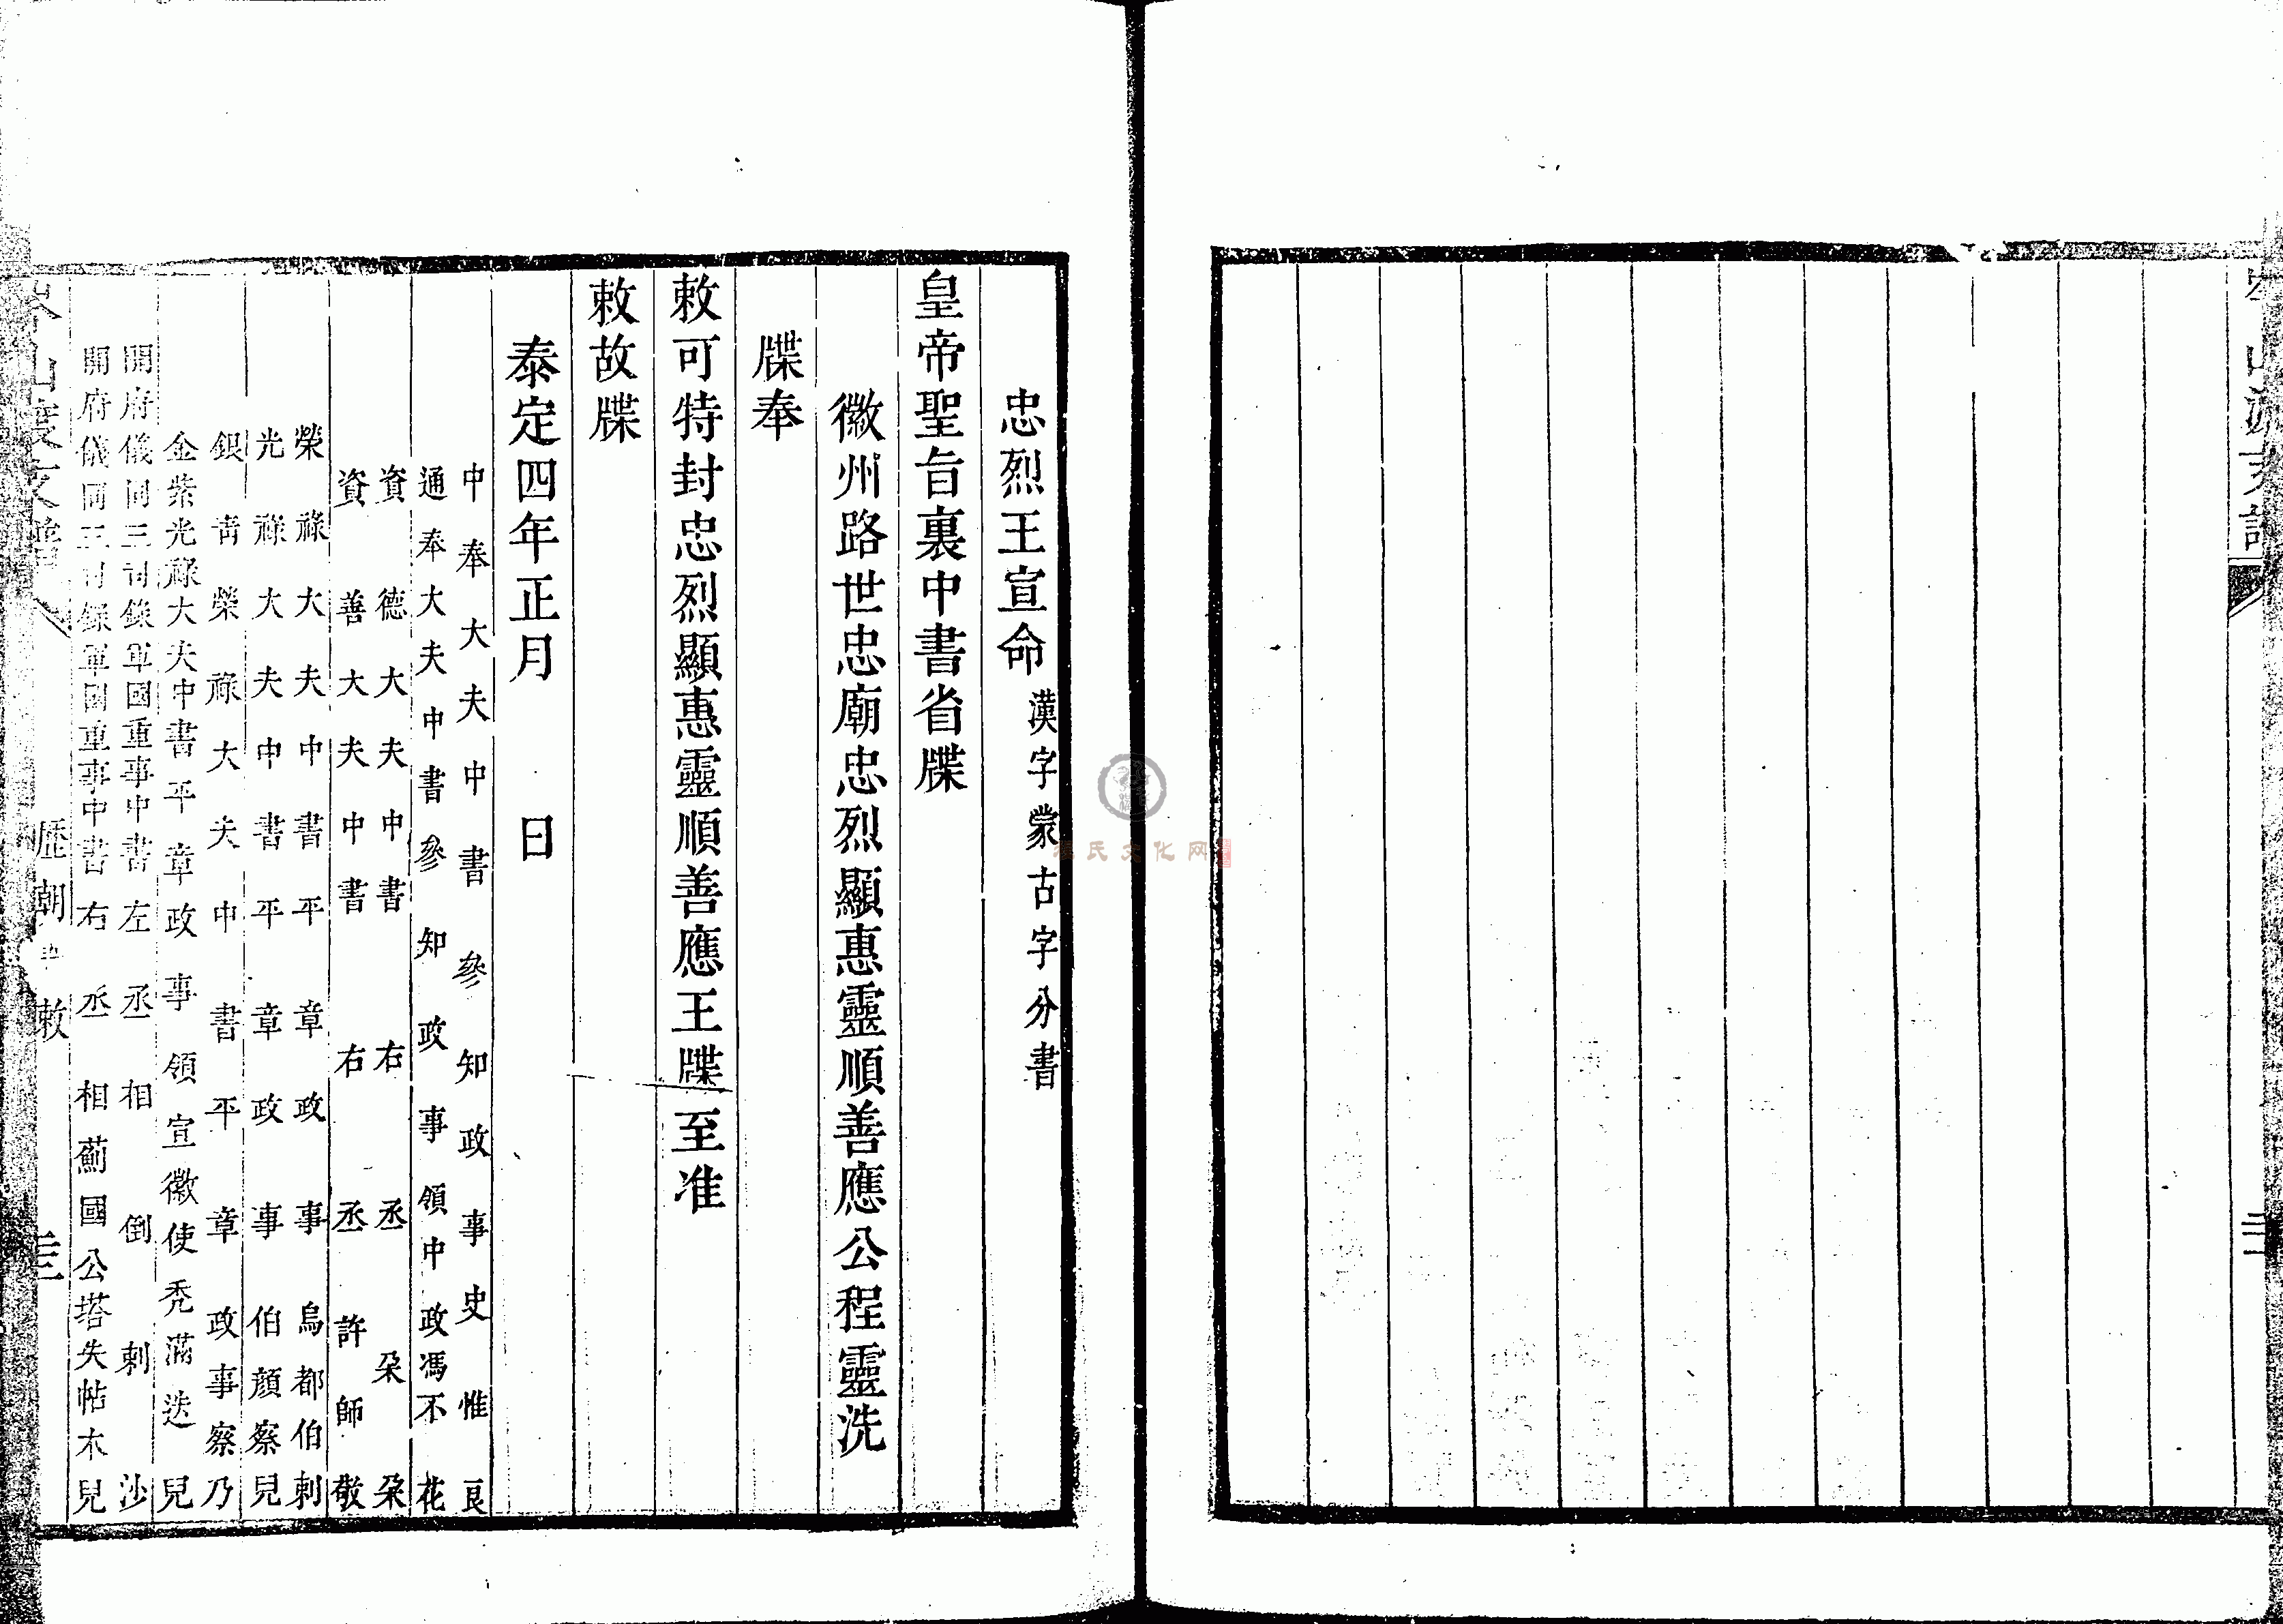 忠烈王宣命漢字蒙古字分書
皇帝聖旨裏中書省牒
徽州路世忠廟忠烈顯惠靈順善應公程靈洗
牒奉
敕可特封忠烈顯惠靈順善應王牒至准
敕故牒
泰定四年正月 日
中奉大夫中書參知政事史惟良
通奉大夫中書參知政事領中政馮不花
資德大夫中書右丞朶朶
資善大夫中書右丞許師敬
榮祿大夫中書平章政事烏都伯剌
光祿大夫中書平章政事伯顔察兒
銀青榮祿大夫中書平章政事察乃
金紫光祿大夫中書平章政事領宣徽使禿滿迭兒
開府儀同三司錄軍國重事中書左丞相倒剌沙
開府儀同三司錄軍國重事中書右丞相薊國公塔失帖木兒
歷朝 敕
氏文化网